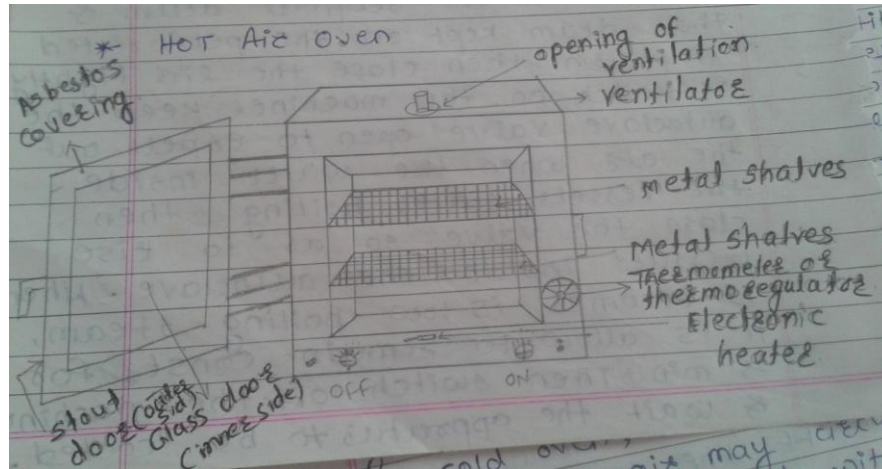 * HOT Air Oven
Asbestos
covering
opening of
ventilation
ventilator
Metal Shalves
Metal Shalves
Thermometer of
thermoregulator
Electronic
heater
OFF
ON
Stout
door (outer
sid)
Glass door
(inner side)
cold
may